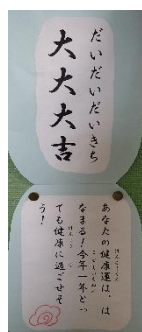 だいだいだいきち
大大大吉
あなたの健康運は、は
なまる！今年一年とっ
ても健康に過ごせそ
う！